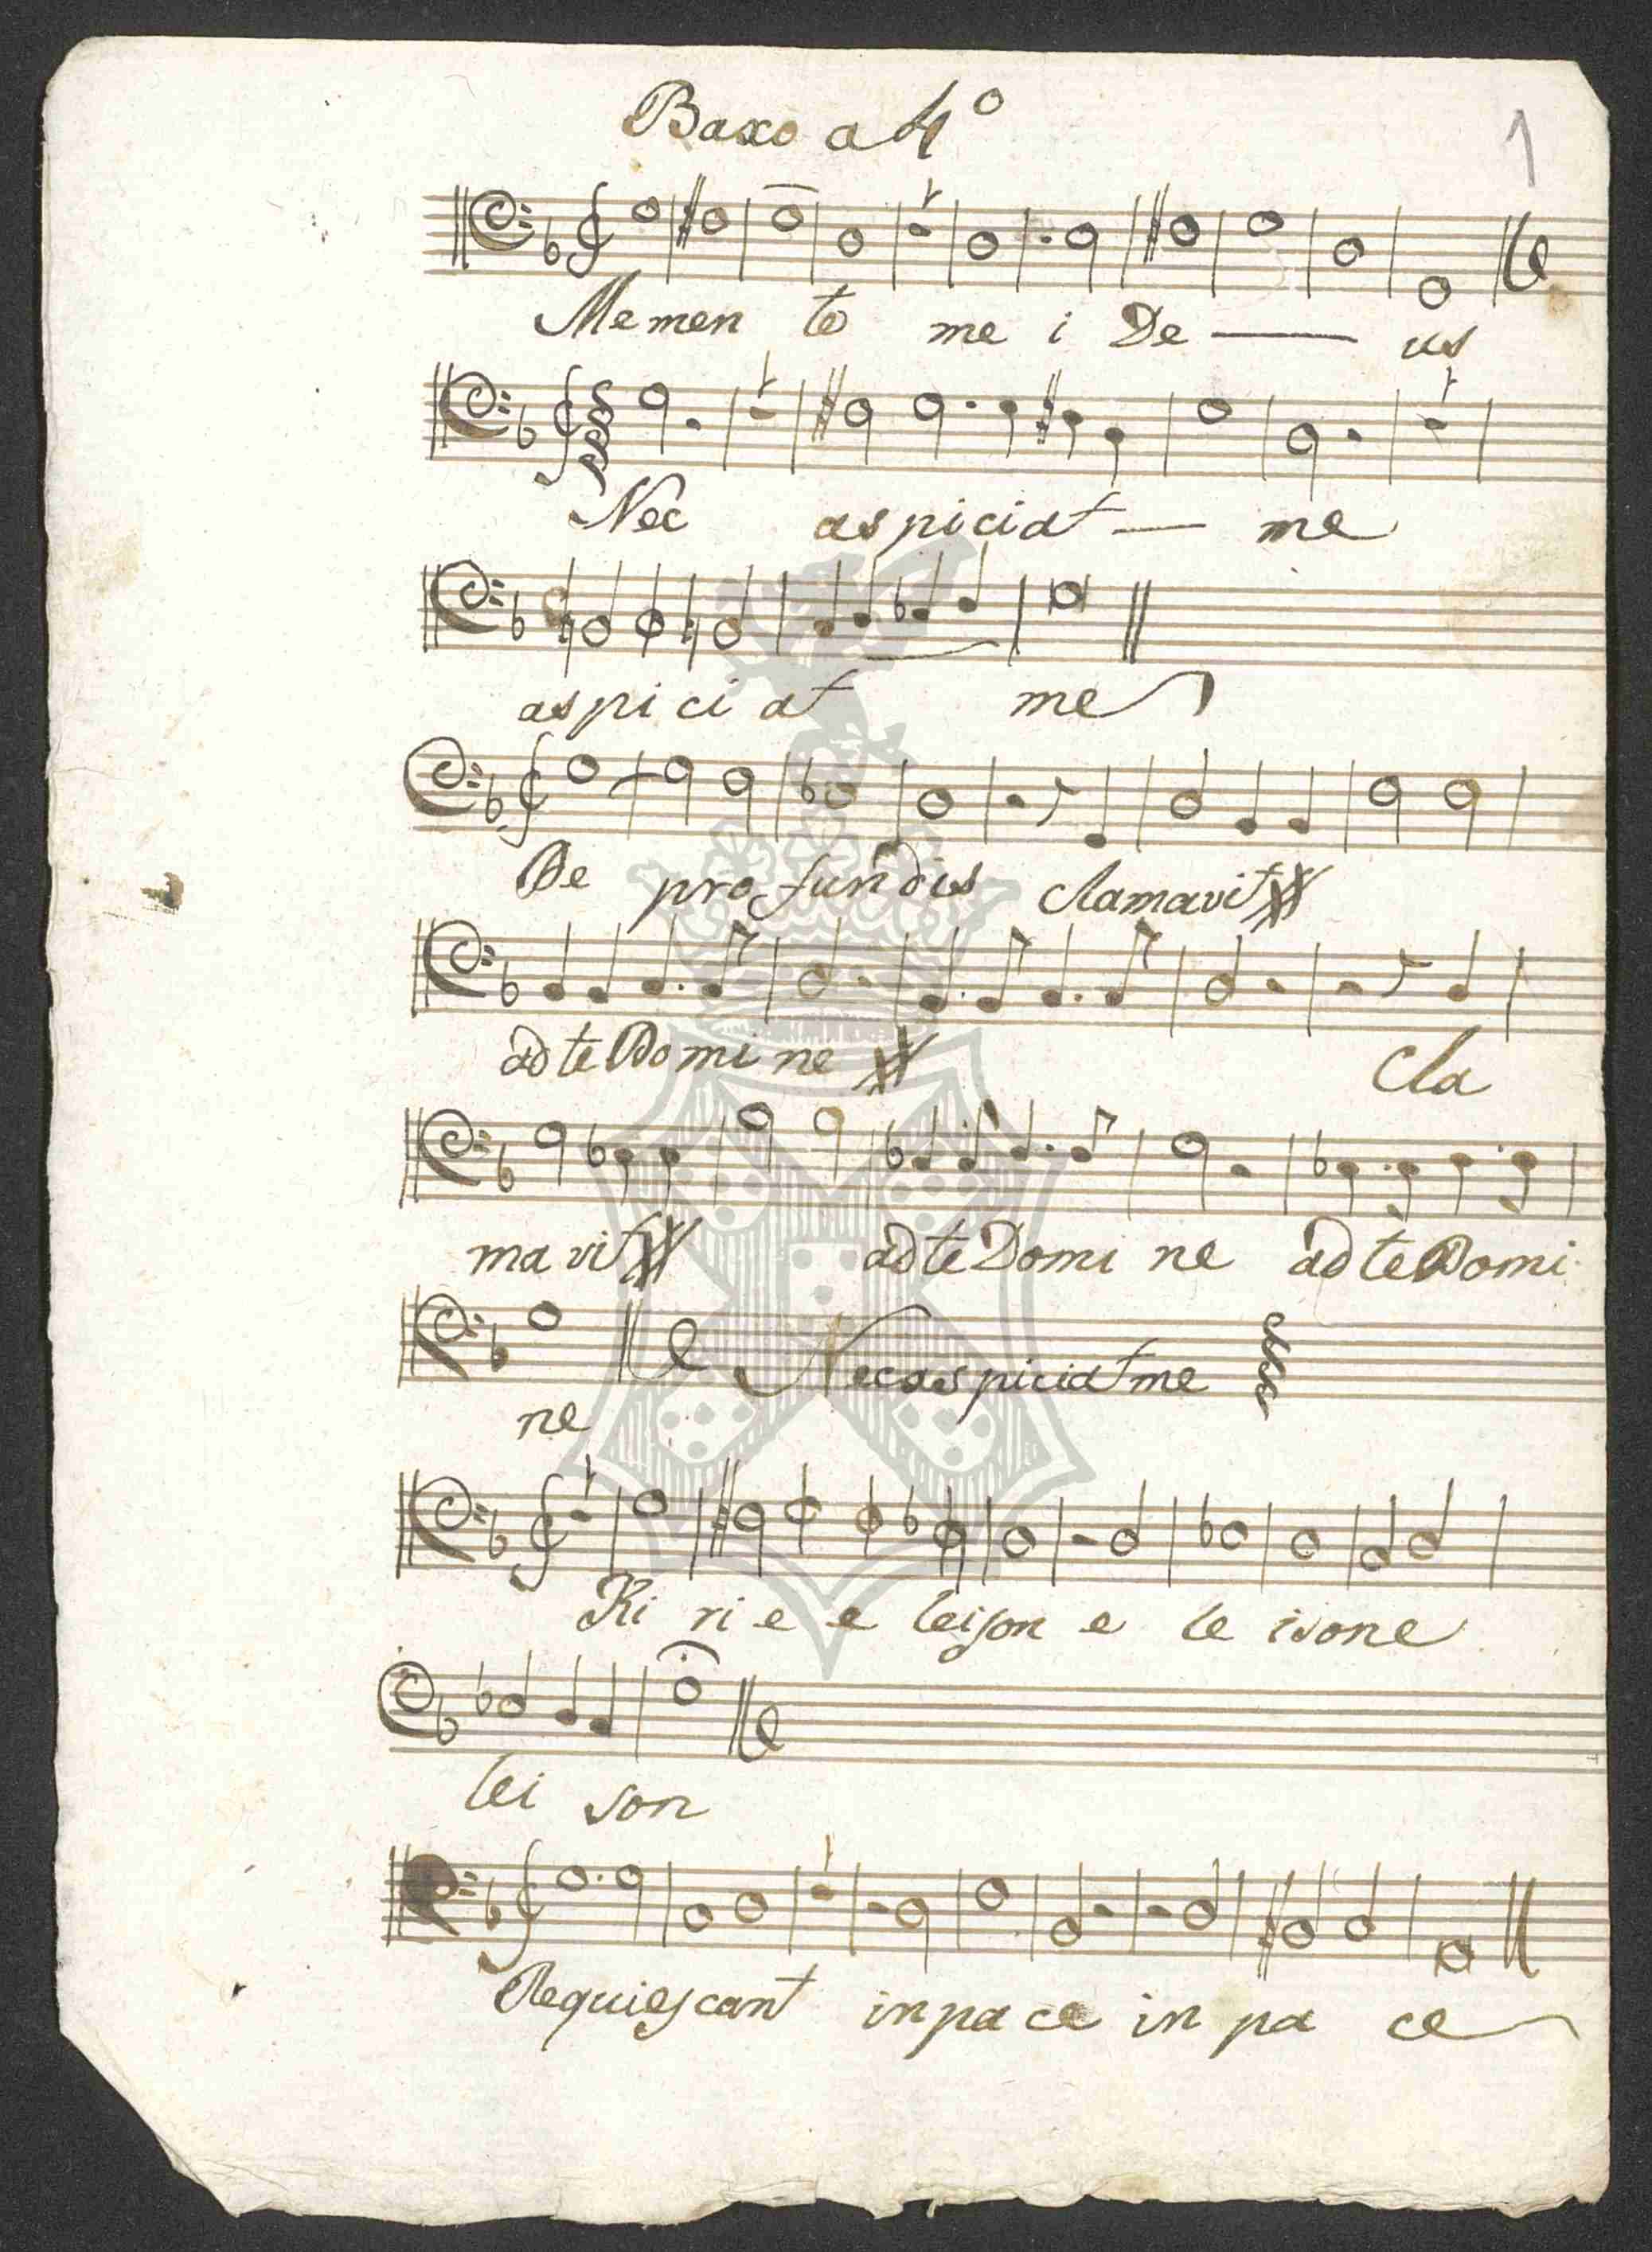 Baxo a 4º
1
Me men to me i De us
Nec as piciat me
as pi ci at me
De pro fun dis clamavit
ad te Do mi ne Cla
ma vit ad te Domi ne ad te Domi
Nec as piciat me
ne
Ki ri e e leison e le isone
lei son
Requiescant in pa ce in pa ce